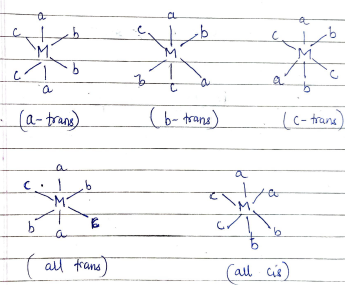 a a a
c b c b c b
M M M
c b b a a c
a c b
(a-trans) (b-trans) (c-trans)
a a
c b c a
M M
b c c b
a b
(all trans) (all cis)